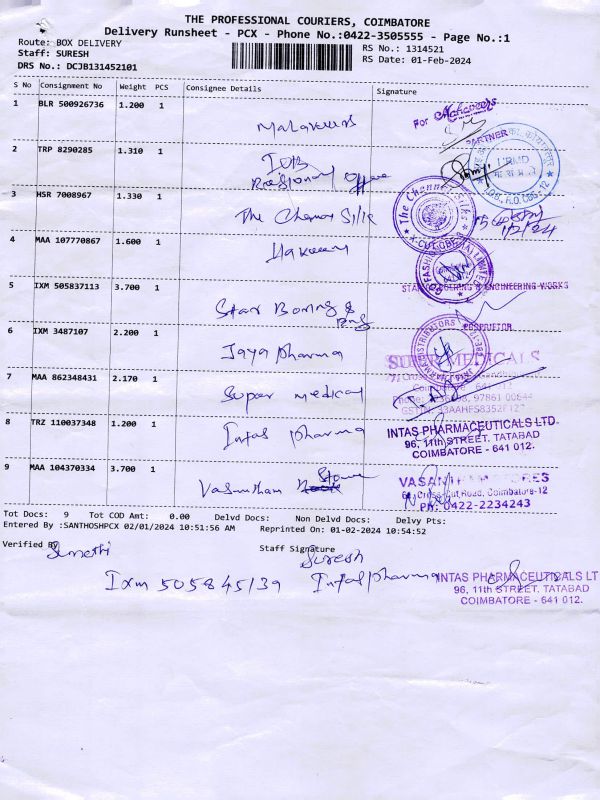 THE PROFESSIONAL COURIERS, COIMBATORE
Delivery Runsheet - PCX - Phone No.:0422-3505555 - Page No.:1
Route: BOX DELIVERY
RS No.: 1314521
Staff: SURESH
RS Date: 01-Feb-2024
DRS No.: DCJB131452101
S No Consignment No Weight PCS Consignee Details Signature
1 BLR 500926736 1.200 1
For Mahaveers
PARTNER
2 TRP 8290285 1.310 1 IOB
Regional Office
3 HSR 7008967 1.330 1 The Chennai Silks
The Chennai Silks
1/2/24
4 MAA 107770867 1.600 1
5 IXM 505837113 3.700 1 Star Boring &
6 IXM 3487107 2.200 1 Jaya pharma
PROPRIETOR
SUPER MEDICALS
7 MAA 862348431 2.170 1 Super medical
8 TRZ 110037348 1.200 1 Intas pharma
INTAS PHARMACEUTICALS LTD.
96, 11th STREET, TATABAD
COIMBATORE - 641 012.
9 MAA 104370334 3.700 1 Vasantham Store
VASANTHAM STORES
Cross-Cut Road, Coimbatore-12
PH: 0422-2234243
Tot Docs: 9 Tot COD Amt: 0.00 Delvd Docs: Non Delvd Docs: Delvy Pts:
Entered By :SANTHOSHPCX 02/01/2024 10:51:56 AM Reprinted On: 01-02-2024 10:54:52
Verified By
Staff Signature
Suresh
Ixm 505845139 Intas pharma
INTAS PHARMACEUTICALS LT
96, 11th STREET, TATABAD
COIMBATORE - 641 012.